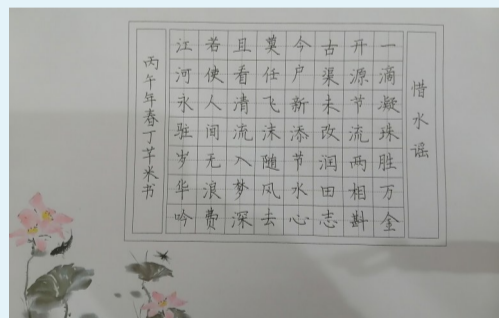 惜水谣
一滴凝珠胜万金
开源节流两相斟
古渠未改润田志
今户新添节水心
莫任飞沫随风去
且看清流入梦深
若使人间无浪费
江河永驻岁华吟
丙午年春丁芊米书